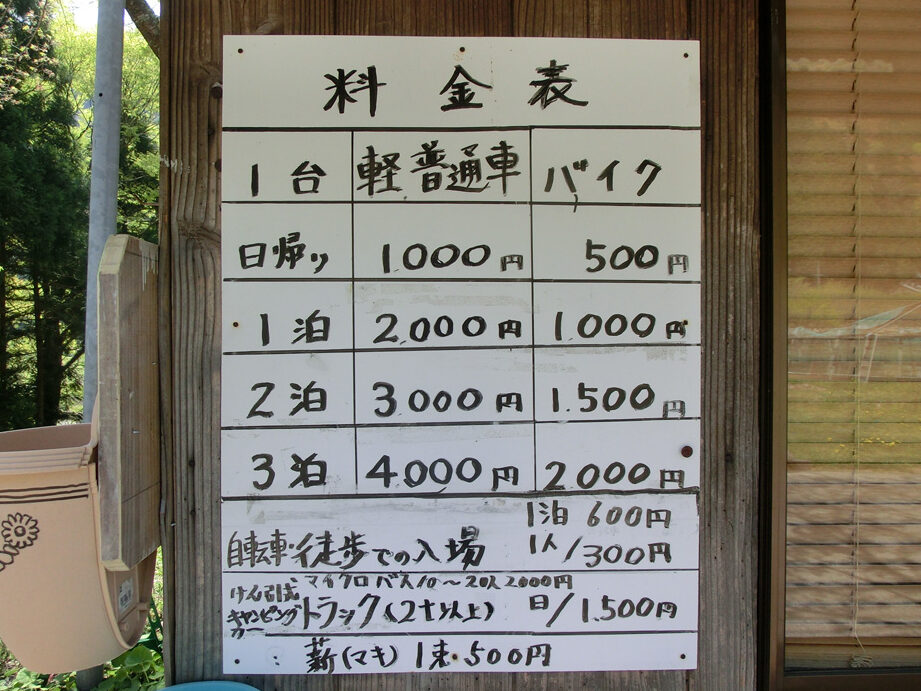 料金表
1台 軽普通車 バイク
日帰り 1.000円 500円
1泊 2.000円 1.000円
2泊 3.000円 1.500円
3泊 4.000円 2.000円
1泊 600円
自転車・徒歩での入場 1人/300円
けん引式 マイクロバス10〜20人2000円
キャンピングカー トラック(2t以上) 日/1.500円
薪(マキ) 1束 500円